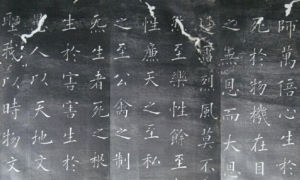 師萬倍心生於
死於物機在目
之無恩而大恩
迅雷烈風莫不
至樂性餘至
性廉天之至私
之至公禽之制
炁生者死之根
生於害害生於
愚人以天地文
聖我以時物文